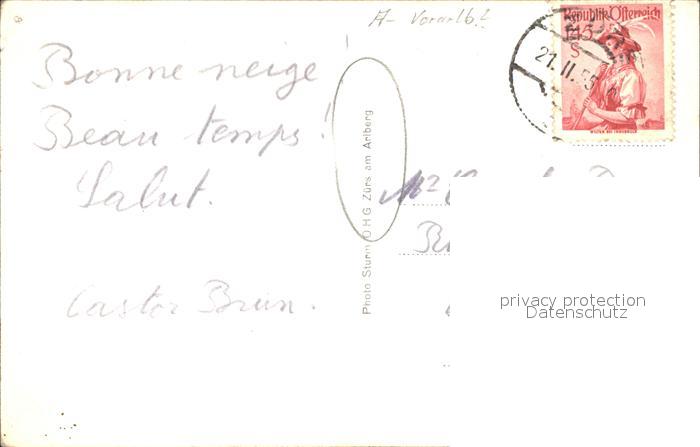 A- Vorarlb.?
Bonne neige !
Beau temps !
Salut.
Castor Brun.
Photo Sturm OHG Zürs am Arlberg
Republik Österreich
1.45
S
21. II. 55
privacy protection
Datenschutz